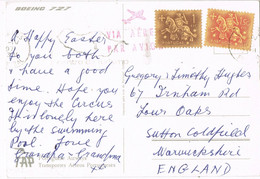 BOEING 727
A Happy Easter
to you both
I have a good
time. Hope you
enjoy the Circus
It is lovely here
by the swimming
Pool. Love
Grandpa & Grandma
TAP
VIA AEREA
PAR AVION
Gregory & Timothy Hughes
67 Irnham Rd
Four Oaks
Sutton Coldfield
Warwickshire
ENGLAND